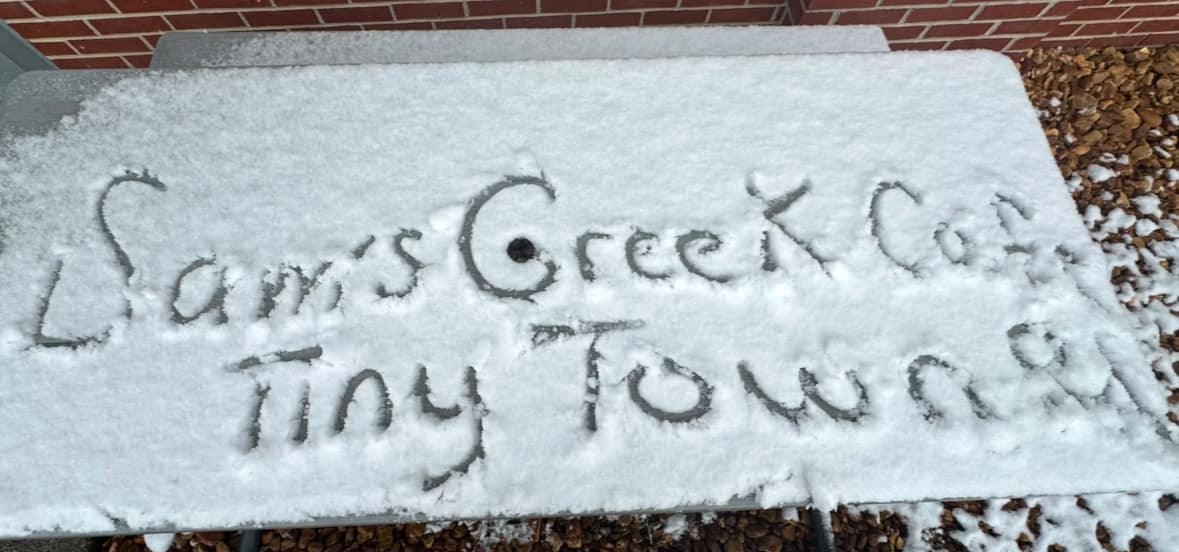 Sam's Greek Cafe
Tiny Town